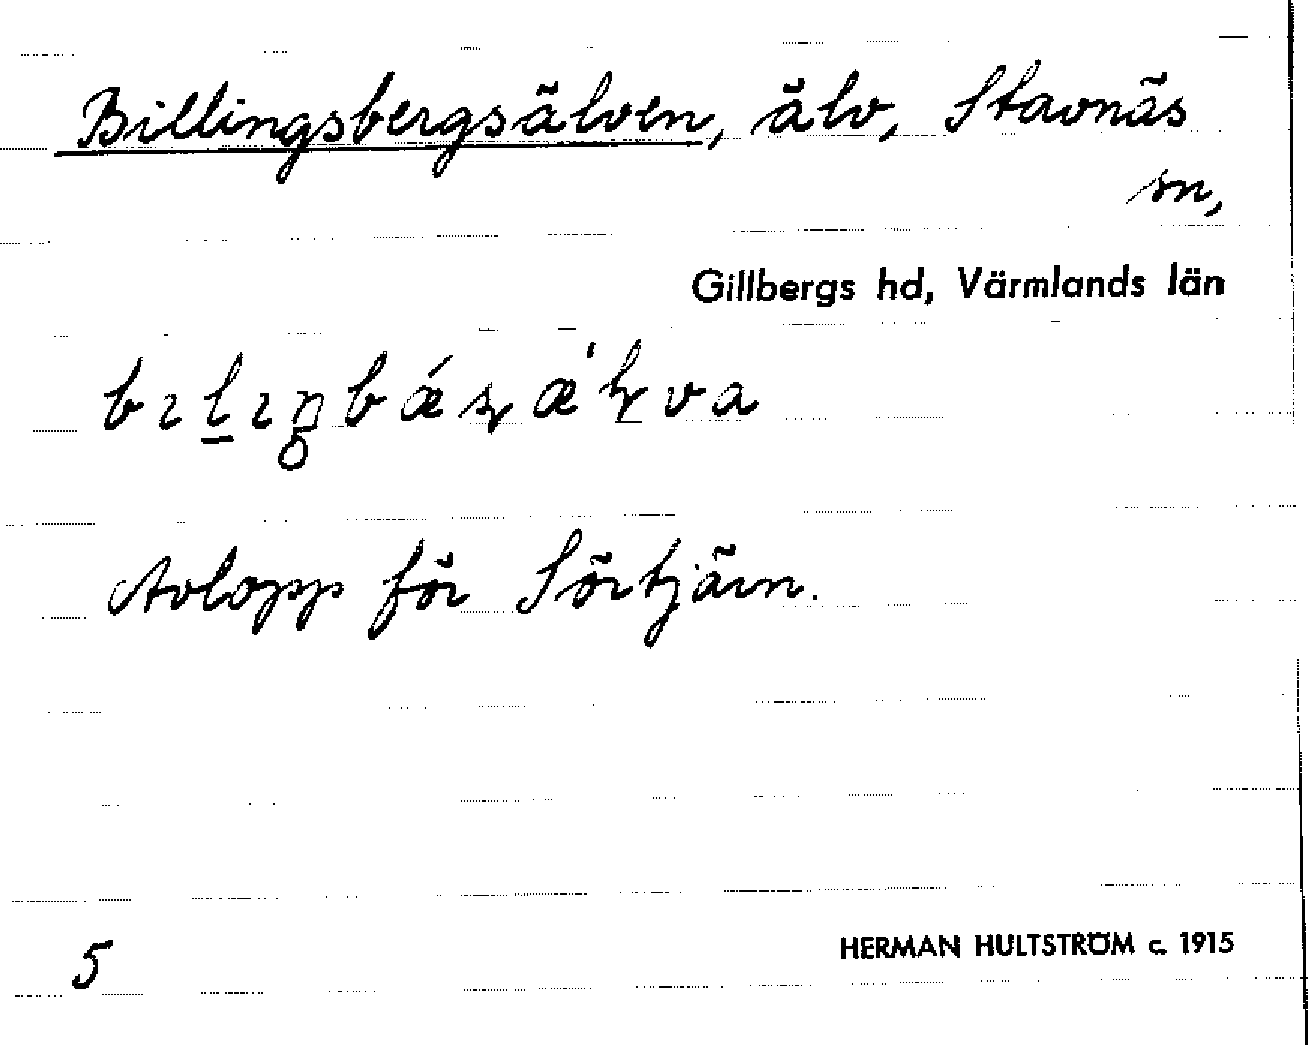 Billingsbergsälven, älv, Stavnäs
sn,
Gillbergs hd, Värmlands län
Avlopp för Sörtjärn.
5
HERMAN HULTSTRÖM c. 1915